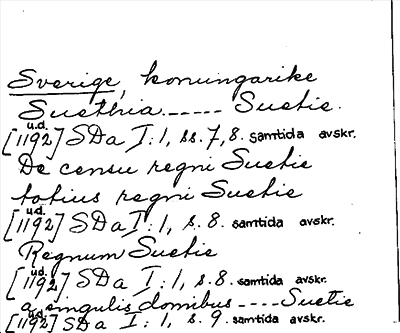 Sverige, konungarike
Suethia ----- Suetie.
u.d.
[1192] SDa I:1, ss. 7, 8. samtida avskr.
De censu regni Suetie
totius regni Suetie
u.d.
[1192] SDa I:1, s. 8. samtida avskr.
Regnum Suetie
u.d.
[1192] SDa I:1, s. 8. samtida avskr.
a singulis domibus ---- Suetie
u.d.
[1192] SDa I:1, s. 9. samtida avskr.